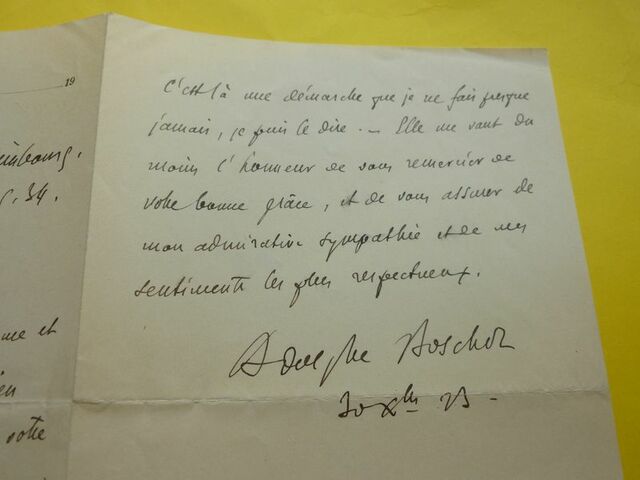 19
C'est là une démarche que je ne fais presque
jamais, je puis le dire. — Elle me vaut du
moins l'honneur de vous remercier de
votre bonne grâce, et de vous assurer de
mon admirative sympathie et de mes
sentiments les plus respectueux.
Adolphe Boschot
30 Xbre 23 -
mbourg.
34.
me et
en
votre